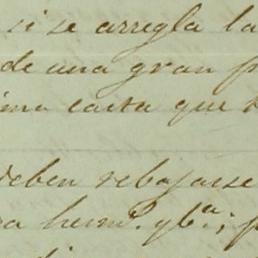 si se arregla la
de una gran p
ima carta que
deben rebajarse
a herm.º y b.ª; p